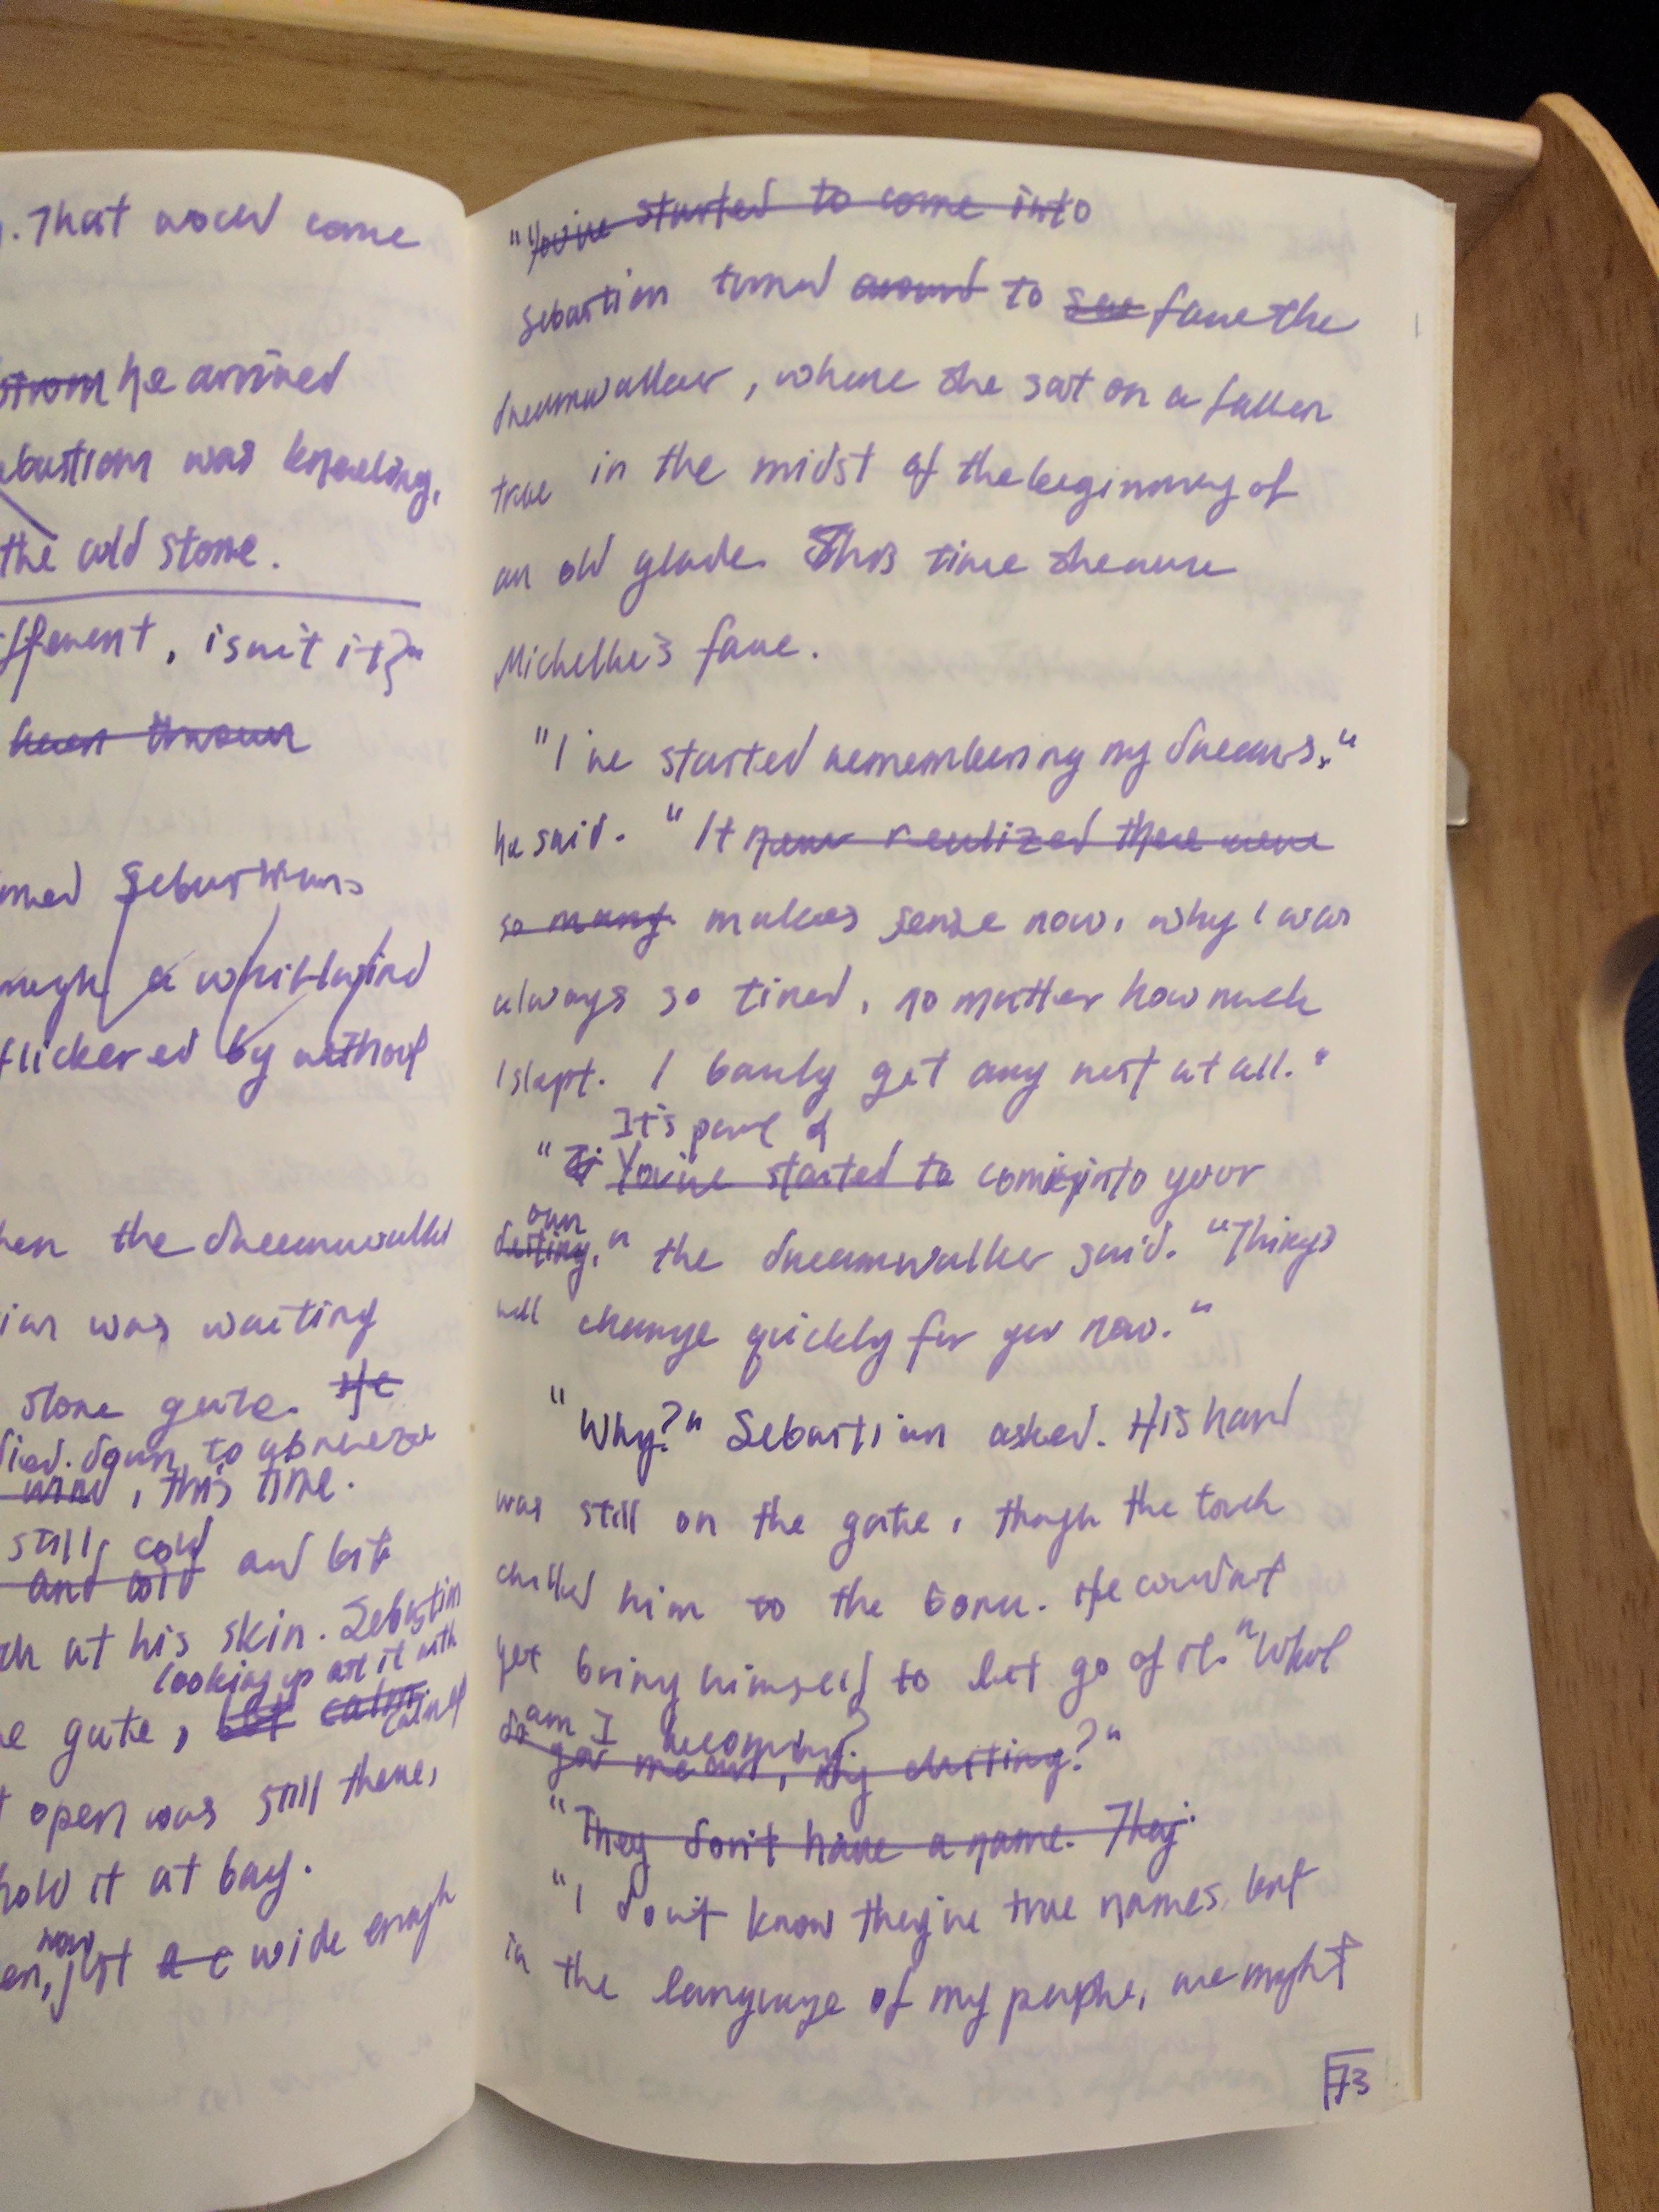 . That would come
he arrived
bastian was kneeling,
the cold stone.
fferent, isn't it?"
been thrown
Sebastian's
a whirlwind
flickered by without
the dreamwalker
ian was waiting
stone gate. He
died down to a breeze
wind, this time.
still, cold
and cold and bit
at his skin. Sebastian
looking up at it with
e gate,
open was still there,
hold it at bay.
now
en, just a c wide enough
"You've started to come into
Sebastian turned around to see face the
dreamwalker, where she sat on a fallen
tree in the midst of the beginning of
an old glade. This time she wore
Michelle's face.
"I've started remembering my dreams,"
he said. "It never realized there were
so many makes sense now, why I was
always so tired, no matter how much
I slept. I barely get any rest at all."
It's part of
"You've started to coming into your
own
destiny," the dreamwalker said. "Things
will change quickly for you now."
"Why?" Sebastian asked. His hand
was still on the gate, though the touch
chilled him to the bone. He couldn't
yet bring himself to let go of it. "What
am I becoming?
do you mean, my destiny?"
"They don't have a name. They
"I don't know they're true names, but
in the language of my people, we might
73